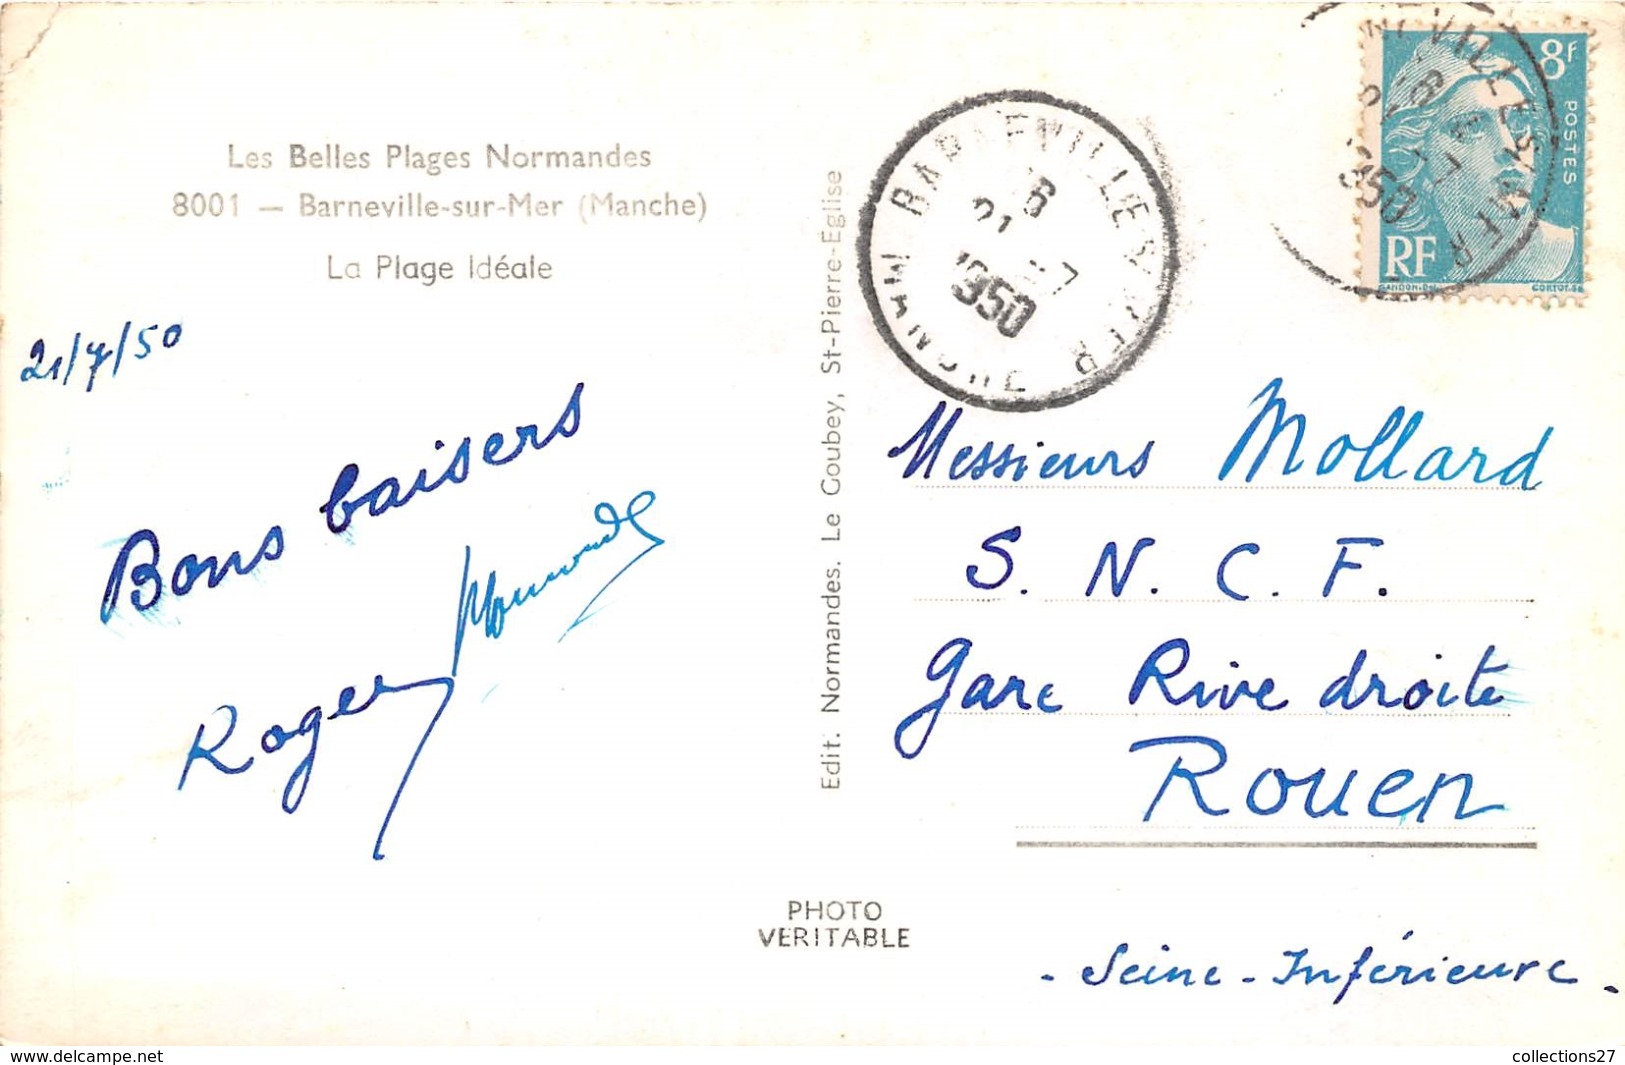 Les Belles Plages Normandes
8001 — Barneville-sur-Mer (Manche)
La Plage Idéale
21/7/50
Bons baisers
Roger
Edit. Normandes. Le Goubey, St-Pierre-Eglise
PHOTO
VERITABLE
BARNEVILLE S MER
21 7
1950
MANCHE
8F
POSTES
RF
GANDON
CORTOT
1950
Messieurs Mollard
S. N. C. F.
Gare Rive droite
Rouen
- Seine-Inférieure -
www.delcampe.net
collections27